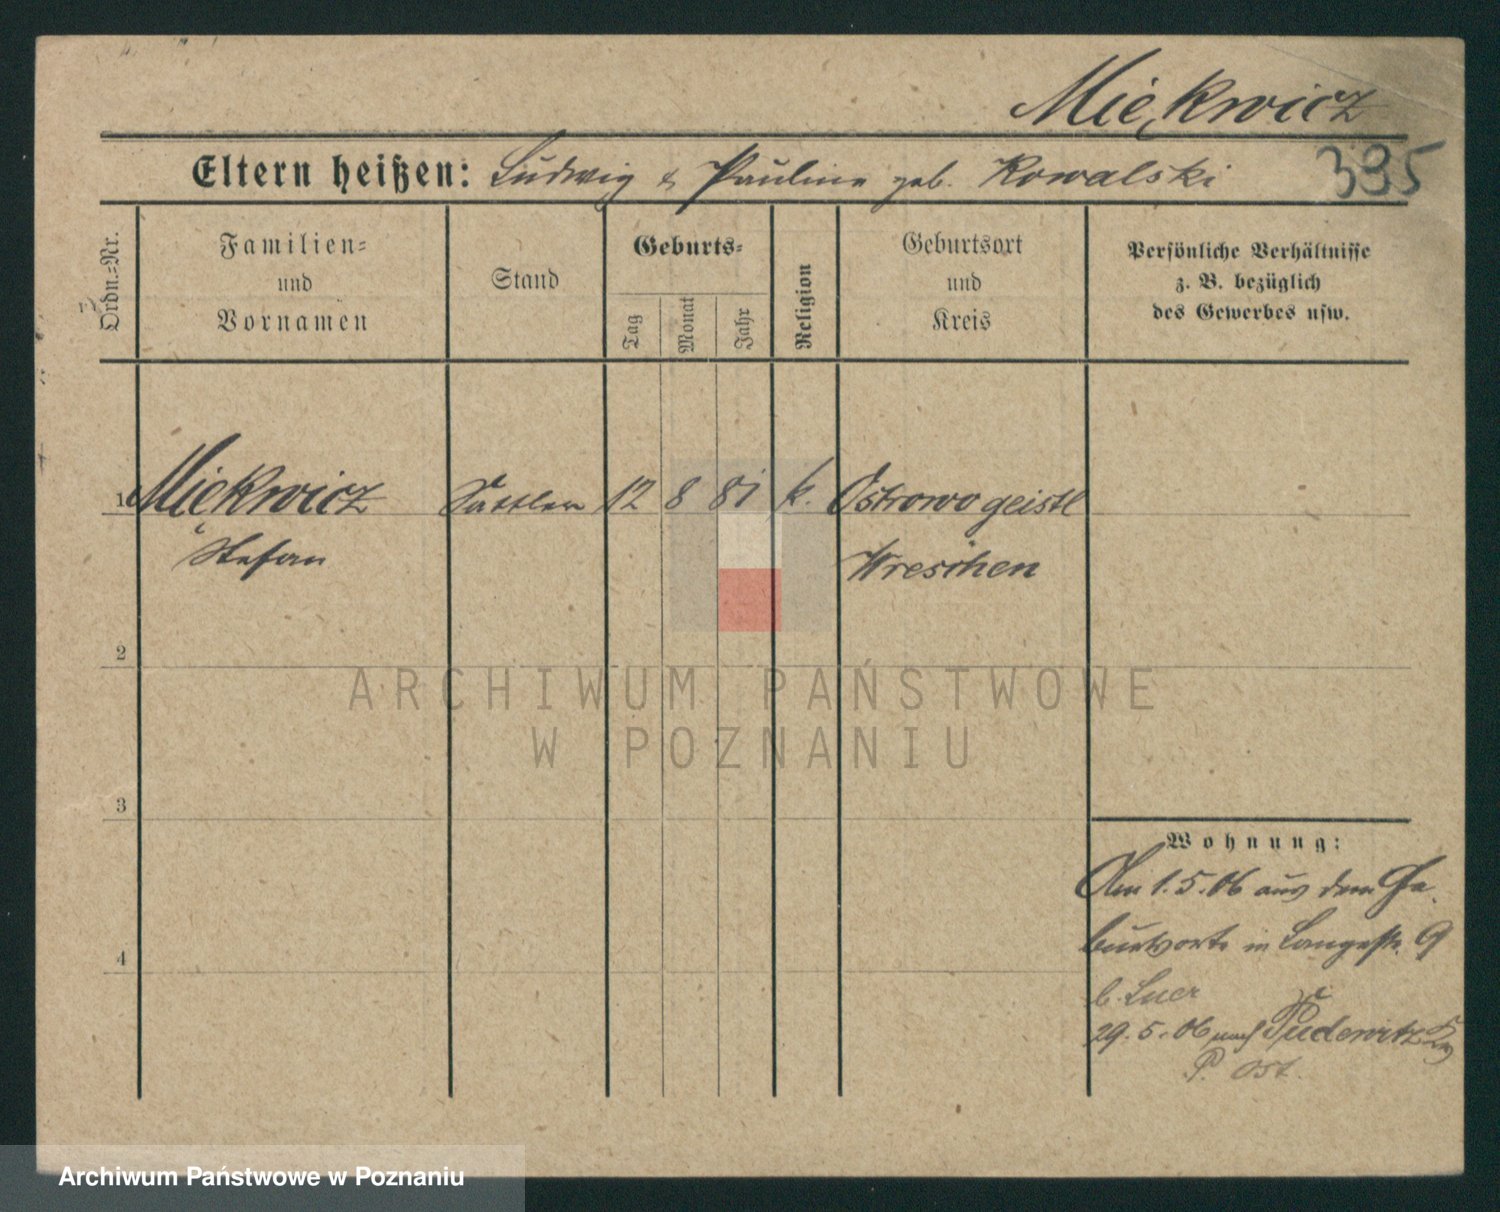 Miękwicz
Eltern heißen: Ludwig & Pauline geb. Kowalski
395
Ordn.=Nr.
Familien=
und
Vornamen
Stand
Geburts=
Tag
Monat
Jahr
Religion
Geburtsort
und
Kreis
Persönliche Verhältnisse
z. B. bezüglich
des Gewerbes usw.
1 Miękwicz Sattler 12 8 81 k. Ostrowo geistl
Stefan Wreschen
2
ARCHIWUM PAŃSTWOWE
W POZNANIU
3
Wohnung:
Am 1.5.06 aus dem Ge-
burtsorte in Langestr. 9
b. Luer
29.5.06 nach Pudewitz
P. Ost.
4
Archiwum Państwowe w Poznaniu